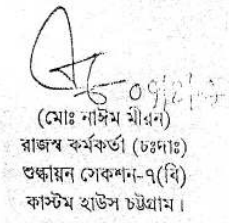 (মোঃ নাঈম মীরন)
রাজস্ব কর্মকর্তা (চঃদাঃ)
শুল্কায়ন সেকশন-৭(বি)
কাস্টম হাউস চট্টগ্রাম।